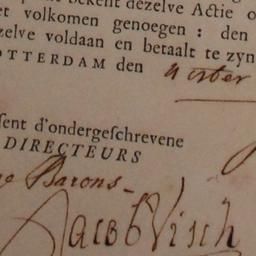 bekent dezelve Actie o
et volkomen genoegen : den
zelve voldaan en betaalt te zyn
OTTERDAM den
ſent d'ondergeſchrevene
DIRECTEURS
Barons
Jacob Visch